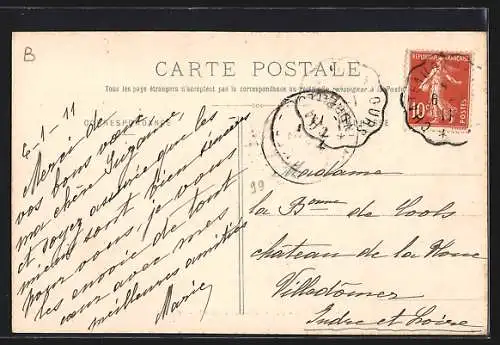 B
CARTE POSTALE
Tous les pays étrangers n'acceptent pas la correspondance au recto
CORRESPONDANCE
6-1-11
Merci de
vos bons vœux
ma chère Suzanne
et soyez assurée que les
miens sont bien sincères
pour vous, je vous
les envoie de tout
cœur avec mes
meilleures amitiés
Marie
99
Madame
la Bonne de Cools
château de la Noue
Villedômer
Indre et Loire
REPUBLIQUE FRANÇAISE
10c
TOURS